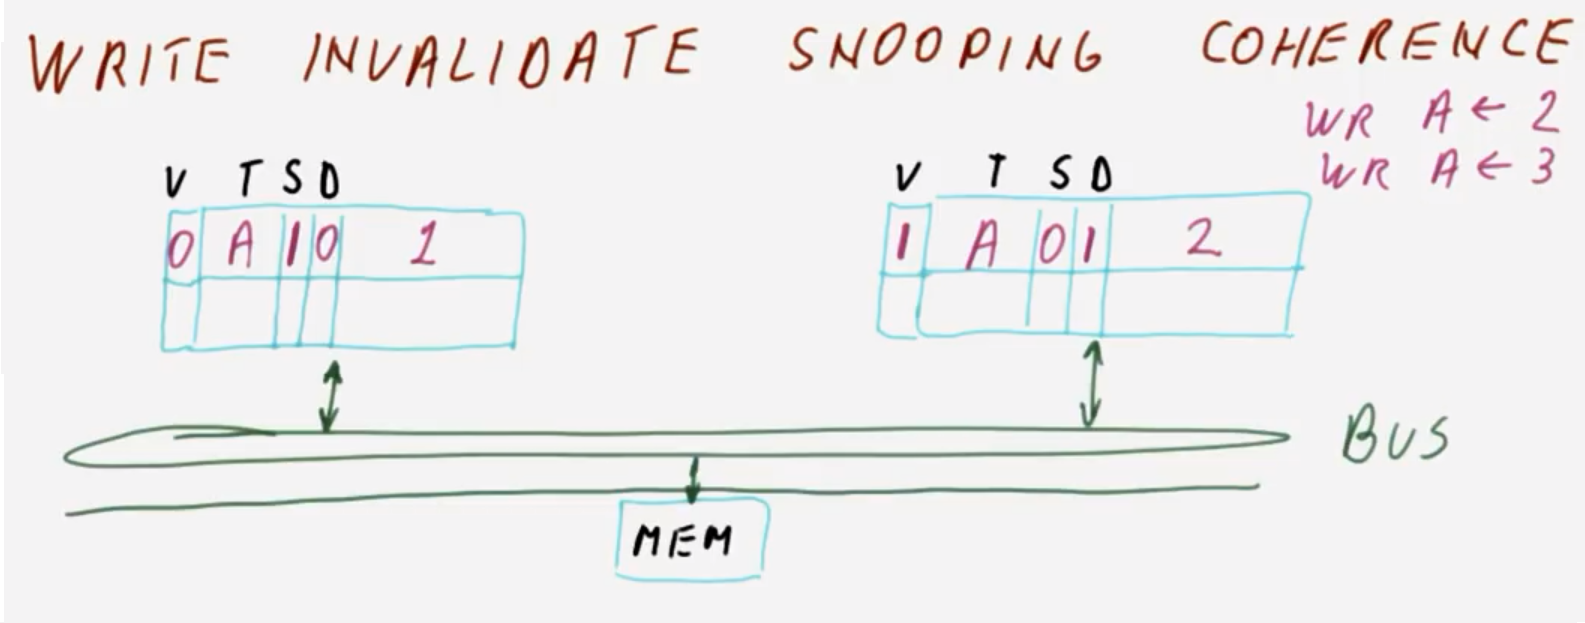 WRITE INVALIDATE SNOOPING COHERENCE
WR A ← 2
WR A ← 3
V T S D
0 A 1 0 1
V T S D
1 A 0 1 2
BUS
MEM